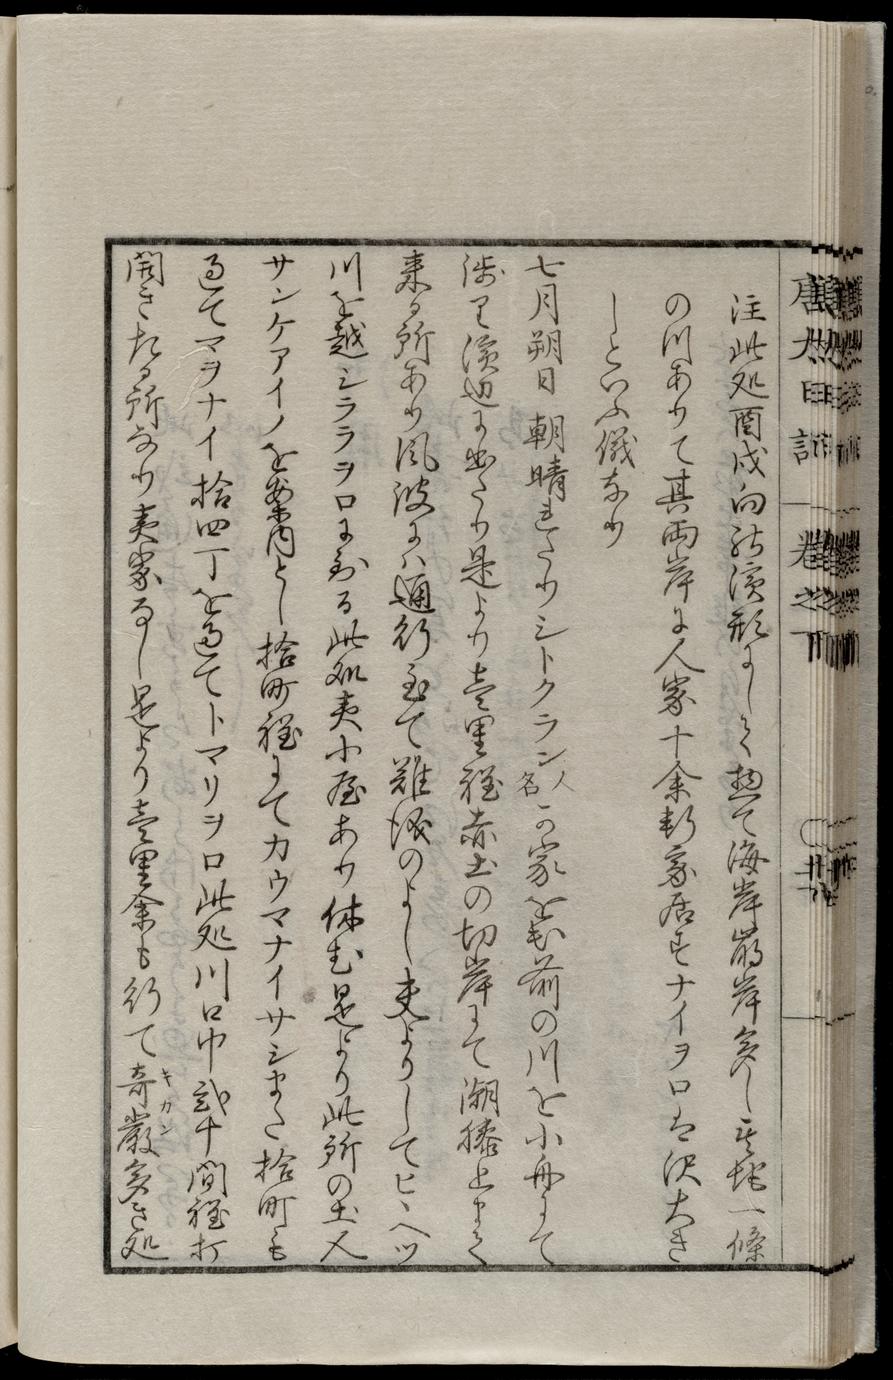 唐太日記 卷之下
注此処酉戌向能濱形よしく惣て海岸崩岸多し其地一條
の川ありて其両岸に人家十余軒家居すナイヲロは沢大き
しといふ儀なり
七月朔日朝晴まさりシトクラン人名の家を出前の川を小舟にて
渉り濱辺に出たり是より壱里程赤土の切岸にて潮膝上まて
来る所あり風波には通行至て難儀のよし夫よりしてヒヽヘツ
川を越シラヲロに到る此処夷小屋あり休む是より此所の土人
サンケアイノを案内とし拾町程にてカウマナイサシまた拾町も
過てマヲナイ拾四丁を過てトマリヲロ此処川口巾弐十間程打
開きたる所なり夷家なし是より壱里余も行て奇巌多き処
キカン